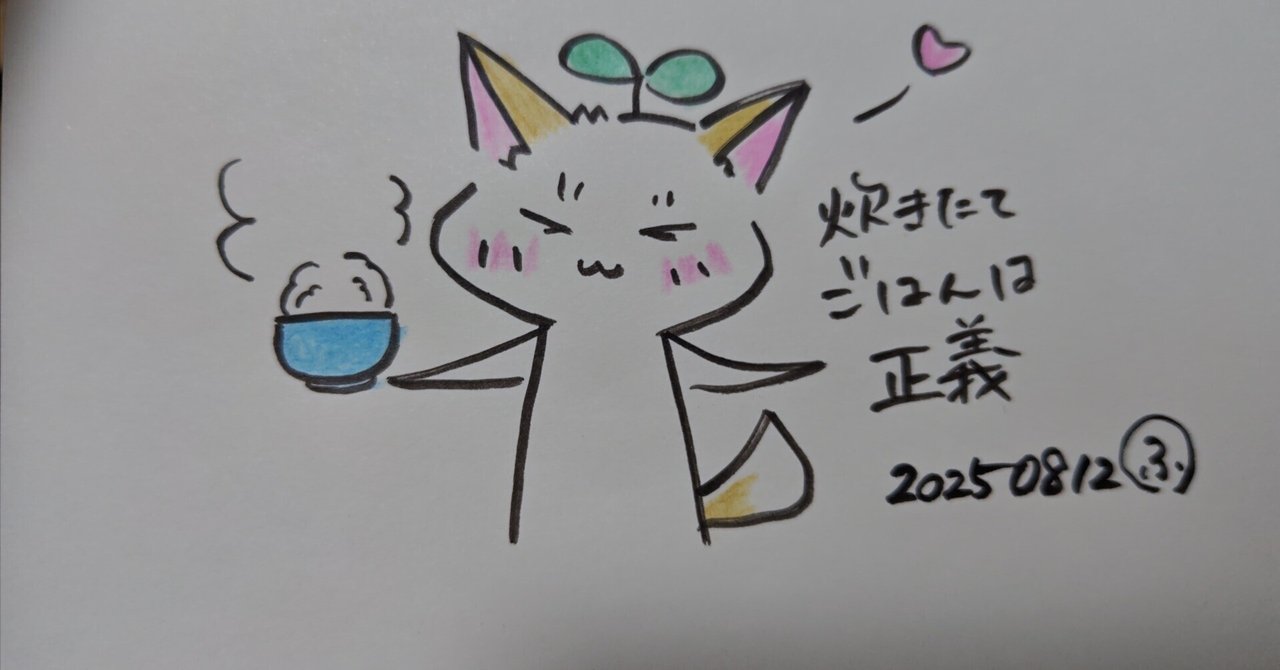 炊きたて
ごはんは
正義
20250812 ふ